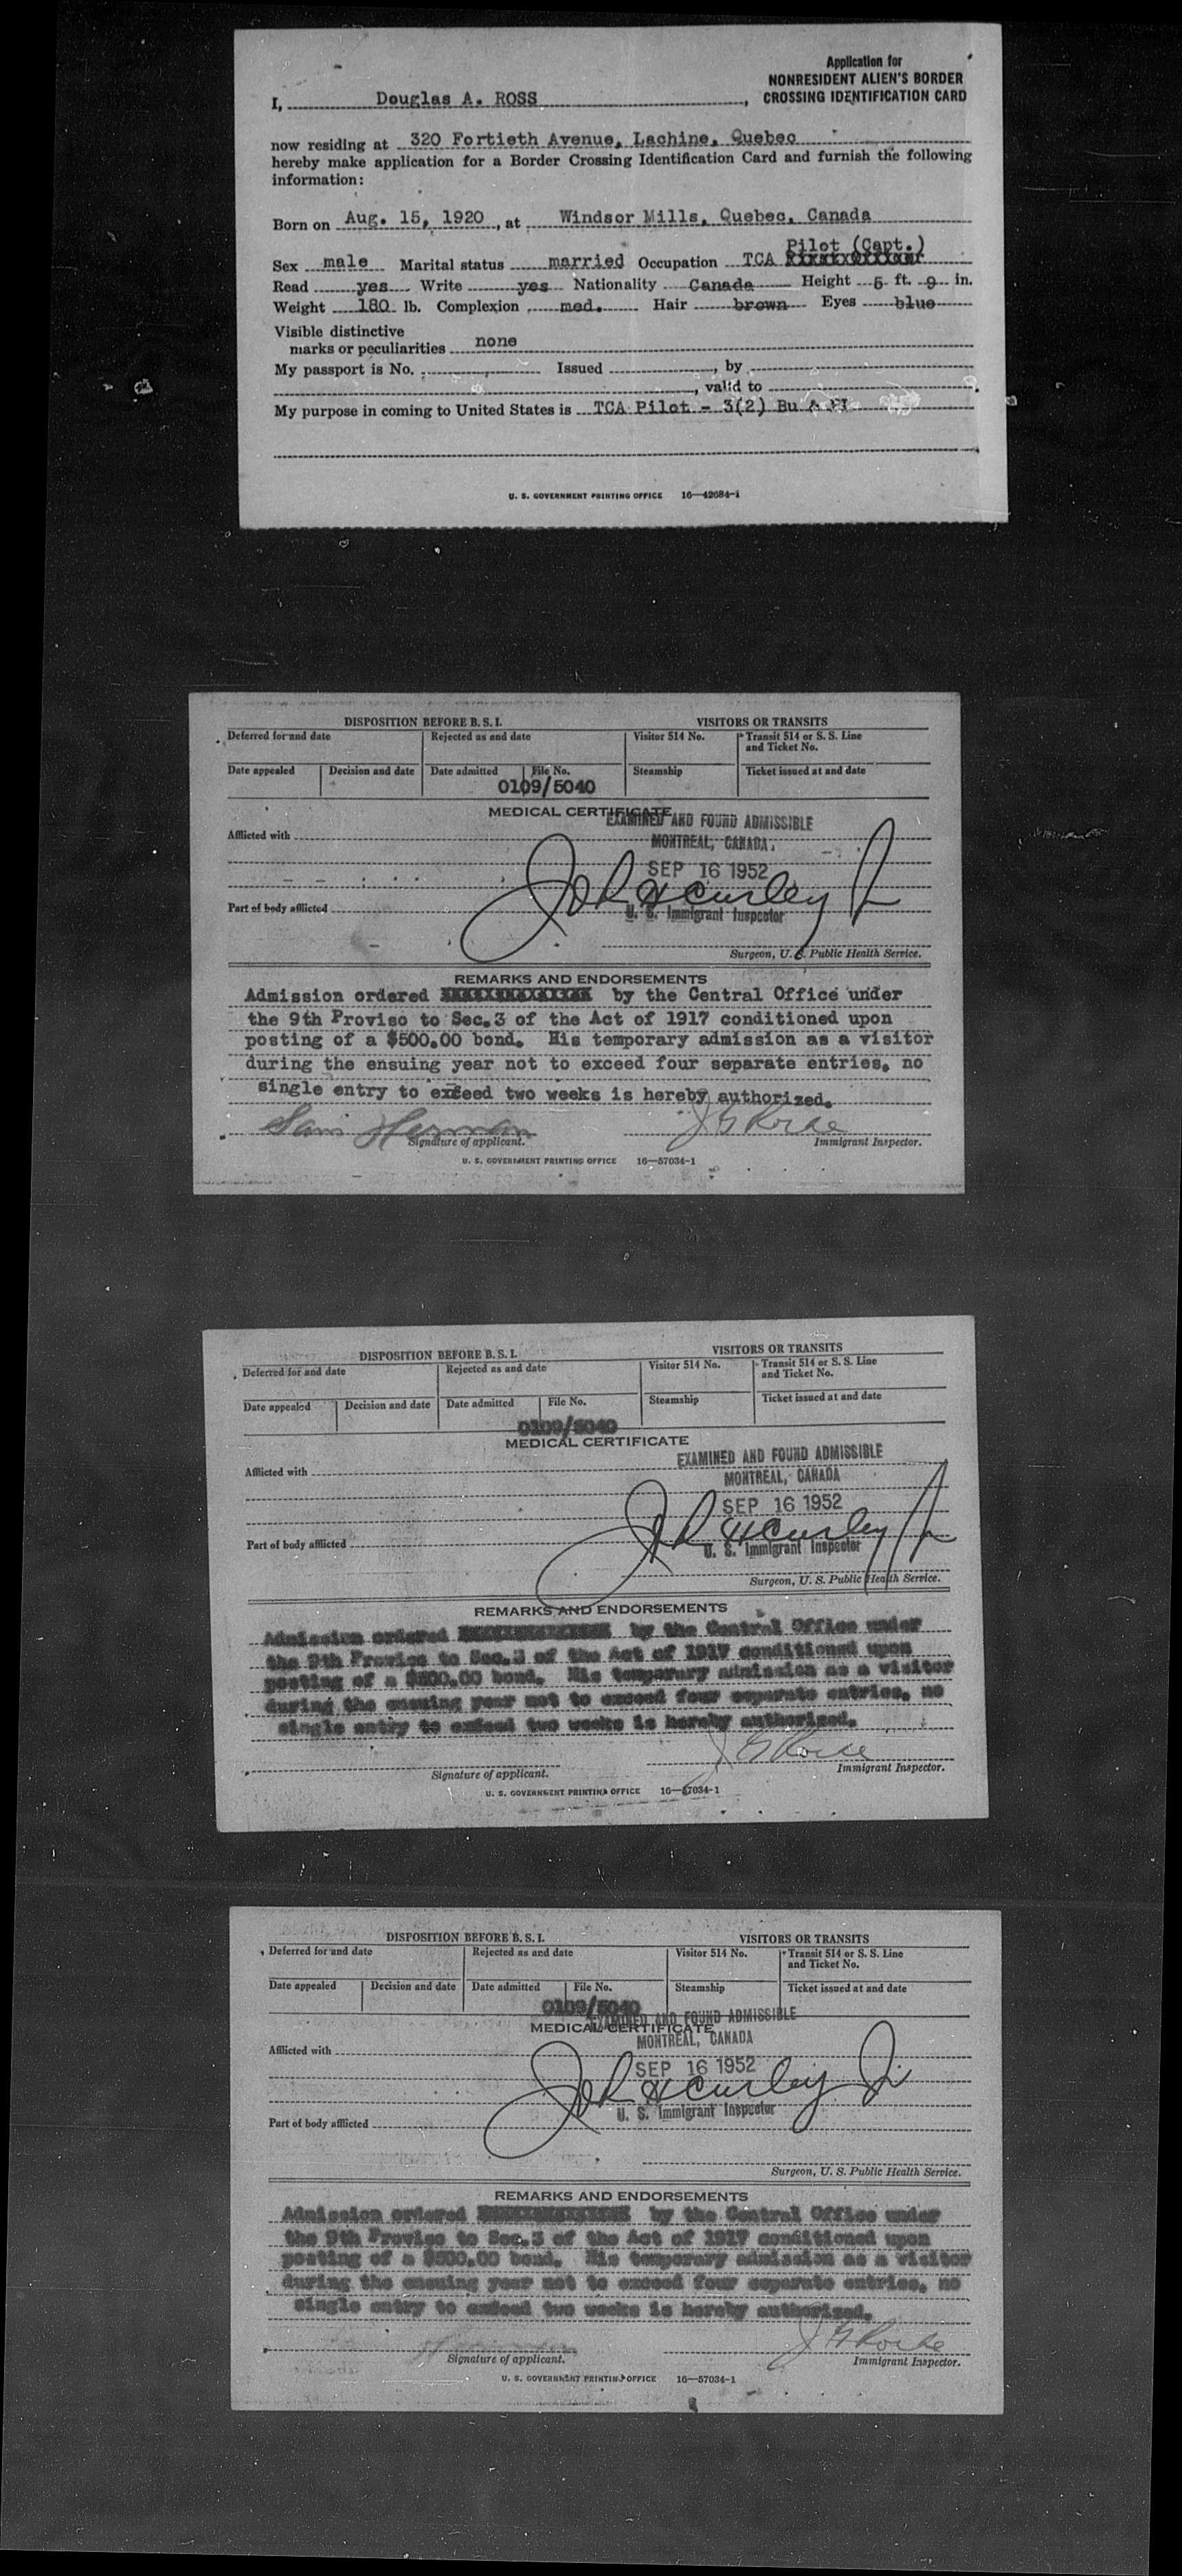 Application for
NONRESIDENT ALIEN'S BORDER
CROSSING IDENTIFICATION CARD
I, Douglas A. ROSS,
now residing at 320 Fortieth Avenue, Lachine, Quebec
hereby make application for a Border Crossing Identification Card and furnish the following
information:
Born on Aug. 15, 1920, at Windsor Mills, Quebec, Canada
Pilot (Capt.)
Sex male Marital status married Occupation TCA
Read yes Write yes Nationality Canada Height 5 ft. 9 in.
Weight 180 lb. Complexion med. Hair brown Eyes blue
Visible distinctive
marks or peculiarities none
My passport is No. Issued , by
, valid to
My purpose in coming to United States is TCA Pilot - 3(2) Bu &
U. S. GOVERNMENT PRINTING OFFICE 16—42684-1
DISPOSITION BEFORE B. S. I. VISITORS OR TRANSITS
Deferred for and date Rejected as and date Visitor 514 No. Transit 514 or S. S. Line
and Ticket No.
Date appealed Decision and date Date admitted File No. Steamship Ticket issued at and date
0109/5040
MEDICAL CERTIFICATE
EXAMINED AND FOUND ADMISSIBLE
Afflicted with
MONTREAL, CANADA.
SEP 16 1952
John H Curley Jr
Part of body afflicted
U. S. Immigrant Inspector
Surgeon, U. S. Public Health Service.
REMARKS AND ENDORSEMENTS
Admission ordered by the Central Office under
the 9th Proviso to Sec.3 of the Act of 1917 conditioned upon
posting of a $500.00 bond. His temporary admission as a visitor
during the ensuing year not to exceed four separate entries, no
single entry to exceed two weeks is hereby authorized.
Sam Herman J G Rorke
Signature of applicant. Immigrant Inspector.
U. S. GOVERNMENT PRINTING OFFICE 16—57034-1
DISPOSITION BEFORE B. S. I. VISITORS OR TRANSITS
Deferred for and date Rejected as and date Visitor 514 No. Transit 514 or S. S. Line
and Ticket No.
Date appealed Decision and date Date admitted File No. Steamship Ticket issued at and date
0109/5040
MEDICAL CERTIFICATE
EXAMINED AND FOUND ADMISSIBLE
Afflicted with
MONTREAL, CANADA
SEP 16 1952
John H Curley Jr
Part of body afflicted
U. S. Immigrant Inspector
Surgeon, U. S. Public Health Service.
REMARKS AND ENDORSEMENTS
Admission ordered by the Central Office under
the 9th Proviso to Sec.3 of the Act of 1917 conditioned upon
posting of a $500.00 bond. His temporary admission as a visitor
during the ensuing year not to exceed four separate entries, no
single entry to exceed two weeks is hereby authorized.
J G Rorke
Signature of applicant. Immigrant Inspector.
U. S. GOVERNMENT PRINTING OFFICE 16—57034-1
DISPOSITION BEFORE B. S. I. VISITORS OR TRANSITS
Deferred for and date Rejected as and date Visitor 514 No. Transit 514 or S. S. Line
and Ticket No.
Date appealed Decision and date Date admitted File No. Steamship Ticket issued at and date
0109/5040
EXAMINED AND FOUND ADMISSIBLE
MEDICAL CERTIFICATE
MONTREAL, CANADA
Afflicted with
SEP 16 1952
John H Curley Jr
U. S. Immigrant Inspector
Part of body afflicted
Surgeon, U. S. Public Health Service.
REMARKS AND ENDORSEMENTS
Admission ordered by the Central Office under
the 9th Proviso to Sec.3 of the Act of 1917 conditioned upon
posting of a $500.00 bond. His temporary admission as a visitor
during the ensuing year not to exceed four separate entries, no
single entry to exceed two weeks is hereby authorized.
J G Rorke
Signature of applicant. Immigrant Inspector.
U. S. GOVERNMENT PRINTING OFFICE 16—57034-1